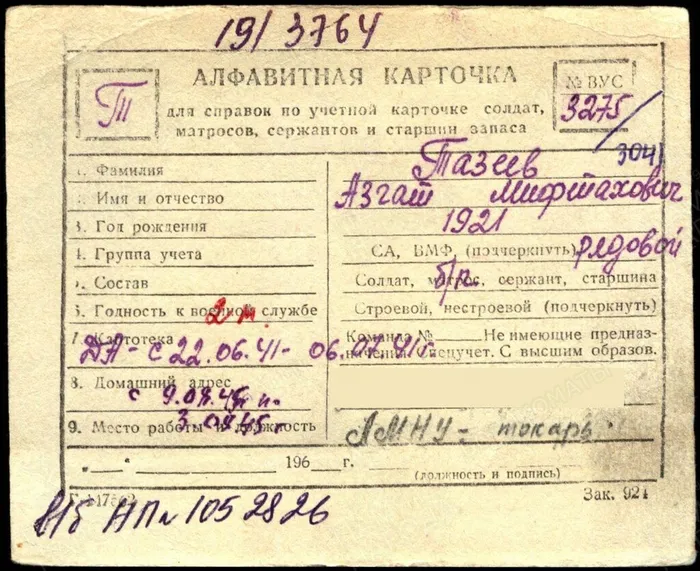 19/3764
АЛФАВИТНАЯ КАРТОЧКА
№ ВУС
Т
3275/
для справок по учетной карточке солдат,
матросов, сержантов и старшин запаса
3041
1. Фамилия
Тазеев
2. Имя и отчество
Азгат Мифтахович
3. Год рождения
1921
4. Группа учета
СА, ВМФ (подчеркнуть) рядовой
5. Состав
Солдат, матрос, сержант, старшина
б/п.
6. Годность к военной службе
Строевой, нестроевой (подчеркнуть)
7. Картотека
Команда № Не имеющие предназ-
начения. Спецучет. С высшим образов.
ДА - с 22.06.41-
8. Домашний адрес
9. Место работы и должность
ЛМНУ - токарь
"__" ________ 196__ г.
(должность и подпись)
Зак. 924
НП № 1052826